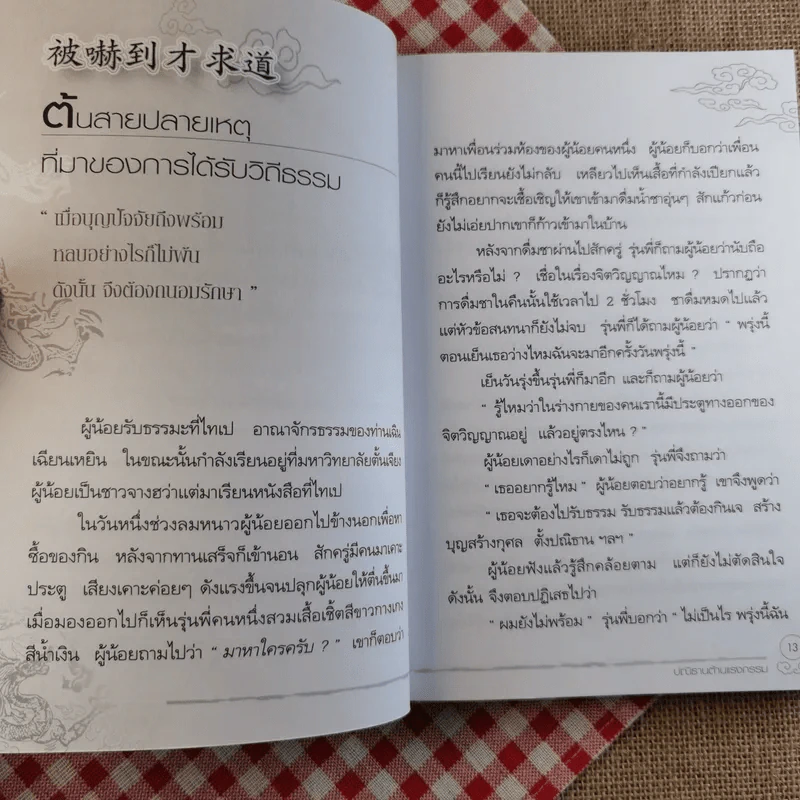 被嚇到才求道
ต้นสายปลายเหตุ
ที่มาของการได้รับวิถีธรรม
“ เมื่อบุญปัจจัยถึงพร้อม
หลบอย่างไรก็ไม่พ้น
ดังนั้น จึงต้องถนอมรักษา ”
ผู้น้อยรับธรรมะที่ไทเป อาณาจักรธรรมของท่านเฉิน
เฉียนเหยิน ในขณะนั้นกำลังเรียนอยู่ที่มหาวิทยาลัยตั้นเจียง
ผู้น้อยเป็นชาวจางฮว่าแต่มาเรียนหนังสือที่ไทเป
ในวันหนึ่งช่วงลมหนาวผู้น้อยออกไปข้างนอกเพื่อหา
ซื้อของกิน หลังจากทานเสร็จก็เข้านอน สักครู่มีคนมาเคาะ
ประตู เสียงเคาะค่อยๆ ดังแรงขึ้นจนปลุกผู้น้อยให้ตื่นขึ้นมา
เมื่อมองออกไปก็เห็นรุ่นพี่คนหนึ่งสวมเสื้อเชิ้ตสีขาวกางเกง
สีน้ำเงิน ผู้น้อยถามไปว่า “ มาหาใครครับ ? ” เขาก็ตอบว่า
มาหาเพื่อนร่วมห้องของผู้น้อยคนหนึ่ง ผู้น้อยก็บอกว่าเพื่อน
คนนี้ไปเรียนยังไม่กลับ เหลียวไปเห็นเสื้อที่กำลังเปียกแล้ว
ก็รู้สึกอยากจะเชื้อเชิญให้เขาเข้ามาดื่มน้ำชาอุ่นๆ สักแก้วก่อน
ยังไม่เอ่ยปากเขาก็ก้าวเข้ามาในบ้าน
หลังจากดื่มชาผ่านไปสักครู่ รุ่นพี่ก็ถามผู้น้อยว่านับถือ
อะไรหรือไม่ ? เชื่อในเรื่องจิตวิญญาณไหม ? ปรากฏว่า
การดื่มชาในคืนนั้นใช้เวลาไป 2 ชั่วโมง ชาดื่มหมดไปแล้ว
แต่หัวข้อสนทนาก็ยังไม่จบ รุ่นพี่ก็ได้ถามผู้น้อยว่า “ พรุ่งนี้
ตอนเย็นเธอว่างไหมฉันจะมาอีกครั้งวันพรุ่งนี้ ”
เย็นวันรุ่งขึ้นรุ่นพี่ก็มาอีก และก็ถามผู้น้อยว่า
“ รู้ไหมว่าในร่างกายของคนเรานี้มีประตูทางออกของ
จิตวิญญาณอยู่ แล้วอยู่ตรงไหน ? ”
ผู้น้อยเดาอย่างไรก็เดาไม่ถูก รุ่นพี่จึงถามว่า
“ เธออยากรู้ไหม ” ผู้น้อยตอบว่าอยากรู้ เขาจึงพูดว่า
“ เธอจะต้องไปรับธรรม รับธรรมแล้วต้องกินเจ สร้าง
บุญสร้างกุศล ตั้งปณิธาน ฯลฯ ”
ผู้น้อยฟังแล้วรู้สึกคล้อยตาม แต่ก็ยังไม่ตัดสินใจ
ดังนั้น จึงตอบปฏิเสธไปว่า
“ ผมยังไม่พร้อม ” รุ่นพี่บอกว่า “ ไม่เป็นไร พรุ่งนี้ฉัน
13
ปณิธานต้านแรงกรรม